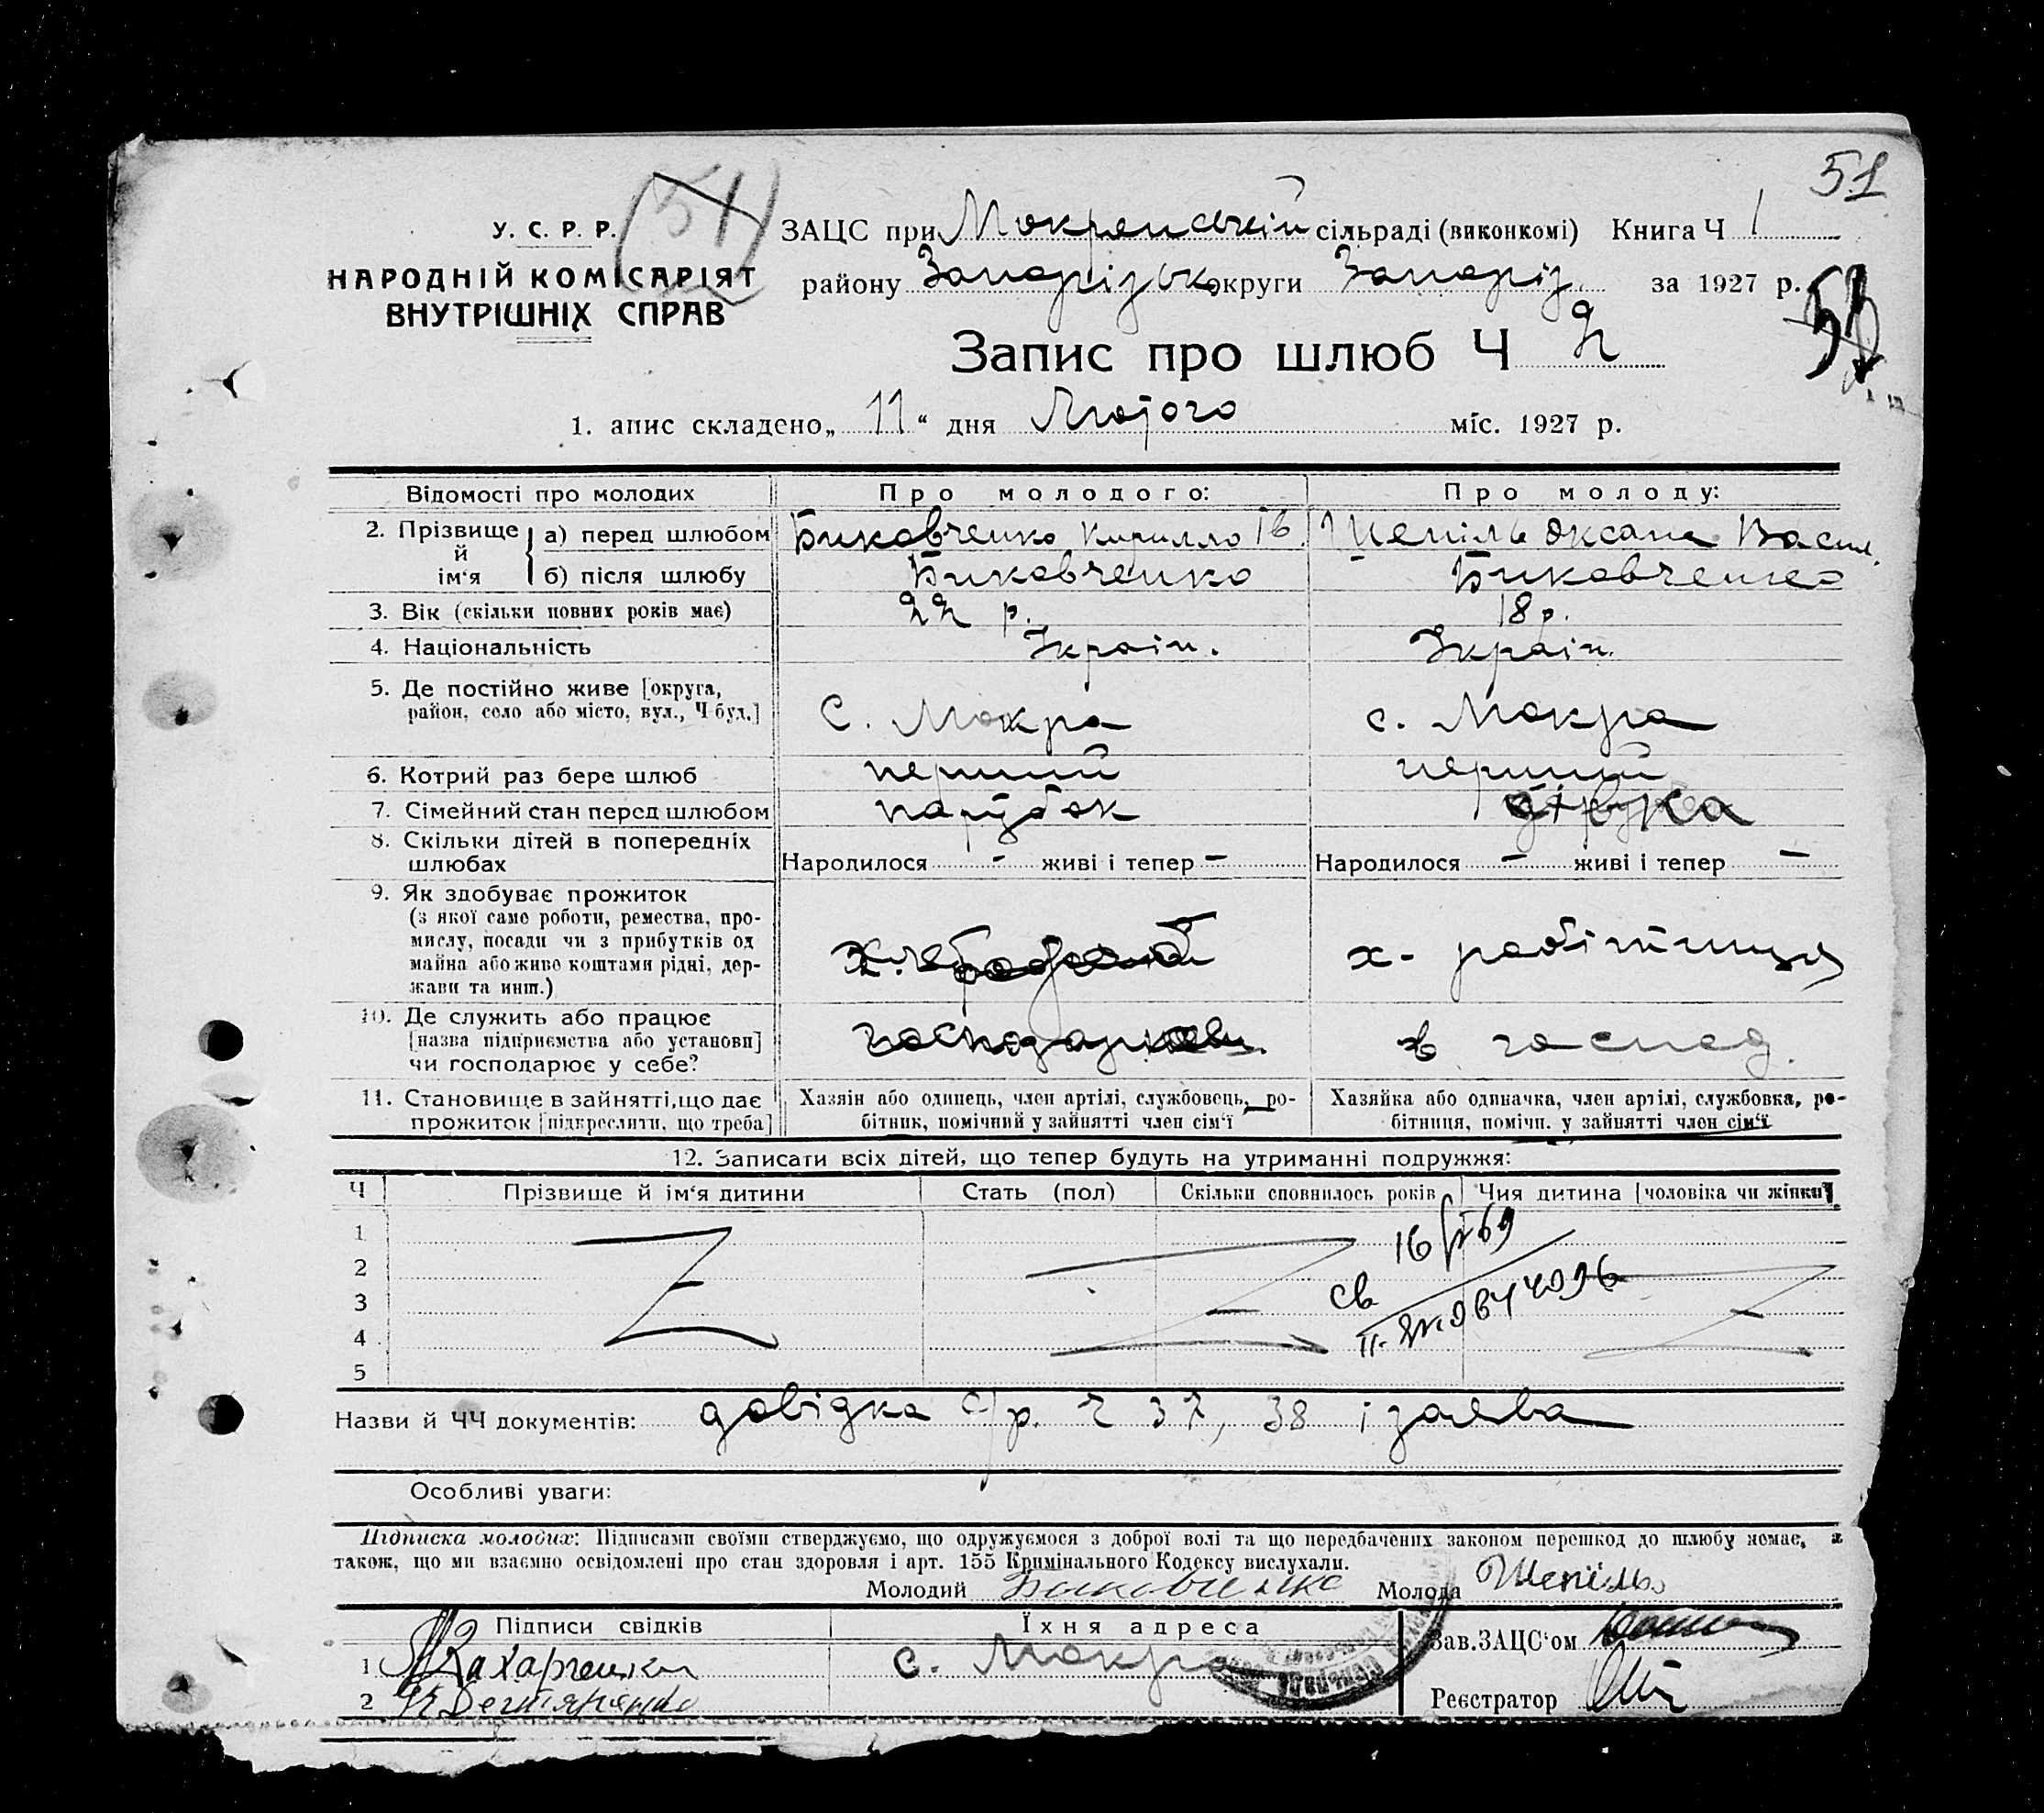 51
У. С. Р. Р. (51) ЗАЦС при Мокрянській сільраді (виконкомі) Книга Ч 1
НАРОДНІЙ КОМІСАРІЯТ
ВНУТРІШНІХ СПРАВ
району Запорізьк округи Запоріз. за 1927 р.
Запис про шлюб Ч 2
1. апис складено „ 11 “ дня Лютого міс. 1927 р.
Відомості про молодих Про молодого: Про молоду:
2. Прізвище й ім‘я а) перед шлюбом Биковченко Кирилло Ів. Шепіль Оксана Васил.
б) після шлюбу Биковченко Биковченко
3. Вік (скільки повних років має) 22 р. 18 р.
4. Національність Україн. Україн.
5. Де постійно живе [округа,
район, село або місто, вул., Ч буд.] С. Мокра с. Мокра
6. Котрий раз бере шлюб перший перший
7. Сімейний стан перед шлюбом парубок дівука
8. Скільки дітей в попередніх
шлюбах Народилося - живі і тепер - Народилося - живі і тепер -
9. Як здобуває прожиток
(з якої саме роботи, ремества, про-
мислу, посади чи з прибутків од
майна або живе коштами рідні, дер-
жави та инш.)
х. робітниця
10. Де служить або працює
[назва підприємства або установи]
чи господарює у себе? в господ.
11. Становище в зайнятті, що дає
прожиток [підкреслити, що треба]
Хазяїн або одинець, член артілі, службовець, ро-
бітник, помічний у зайнятті член сім‘ї
Хазяйка або одиначка, член артілі, службовка, ро-
бітниця, помічн. у зайнятті член сім‘ї
12. Записати всіх дітей, що тепер будуть на утриманні подружжя:
Ч Прізвище й ім‘я дитини Стать (пол) Скільки сповнилось років Чия дитина [чоловіка чи жінки]
1
2
3
4
5
Назви й ЧЧ документів: довідка с/р. ч 37, 38 і заява
Особливі уваги:
Підписка молодих: Підписами своїми стверджуємо, що одружуємося з доброї волі та що передбачених законом перешкод до шлюбу немає, а
також, що ми взаємно освідомлені про стан здоровля і арт. 155 Кримінального Кодексу вислухали.
Молодий Биковченко Молода Шепіль
Підписи свідків Їхня адреса
Зав. ЗАЦС‘ом
1 Захарченко с. Мокра
2
Реєстратор